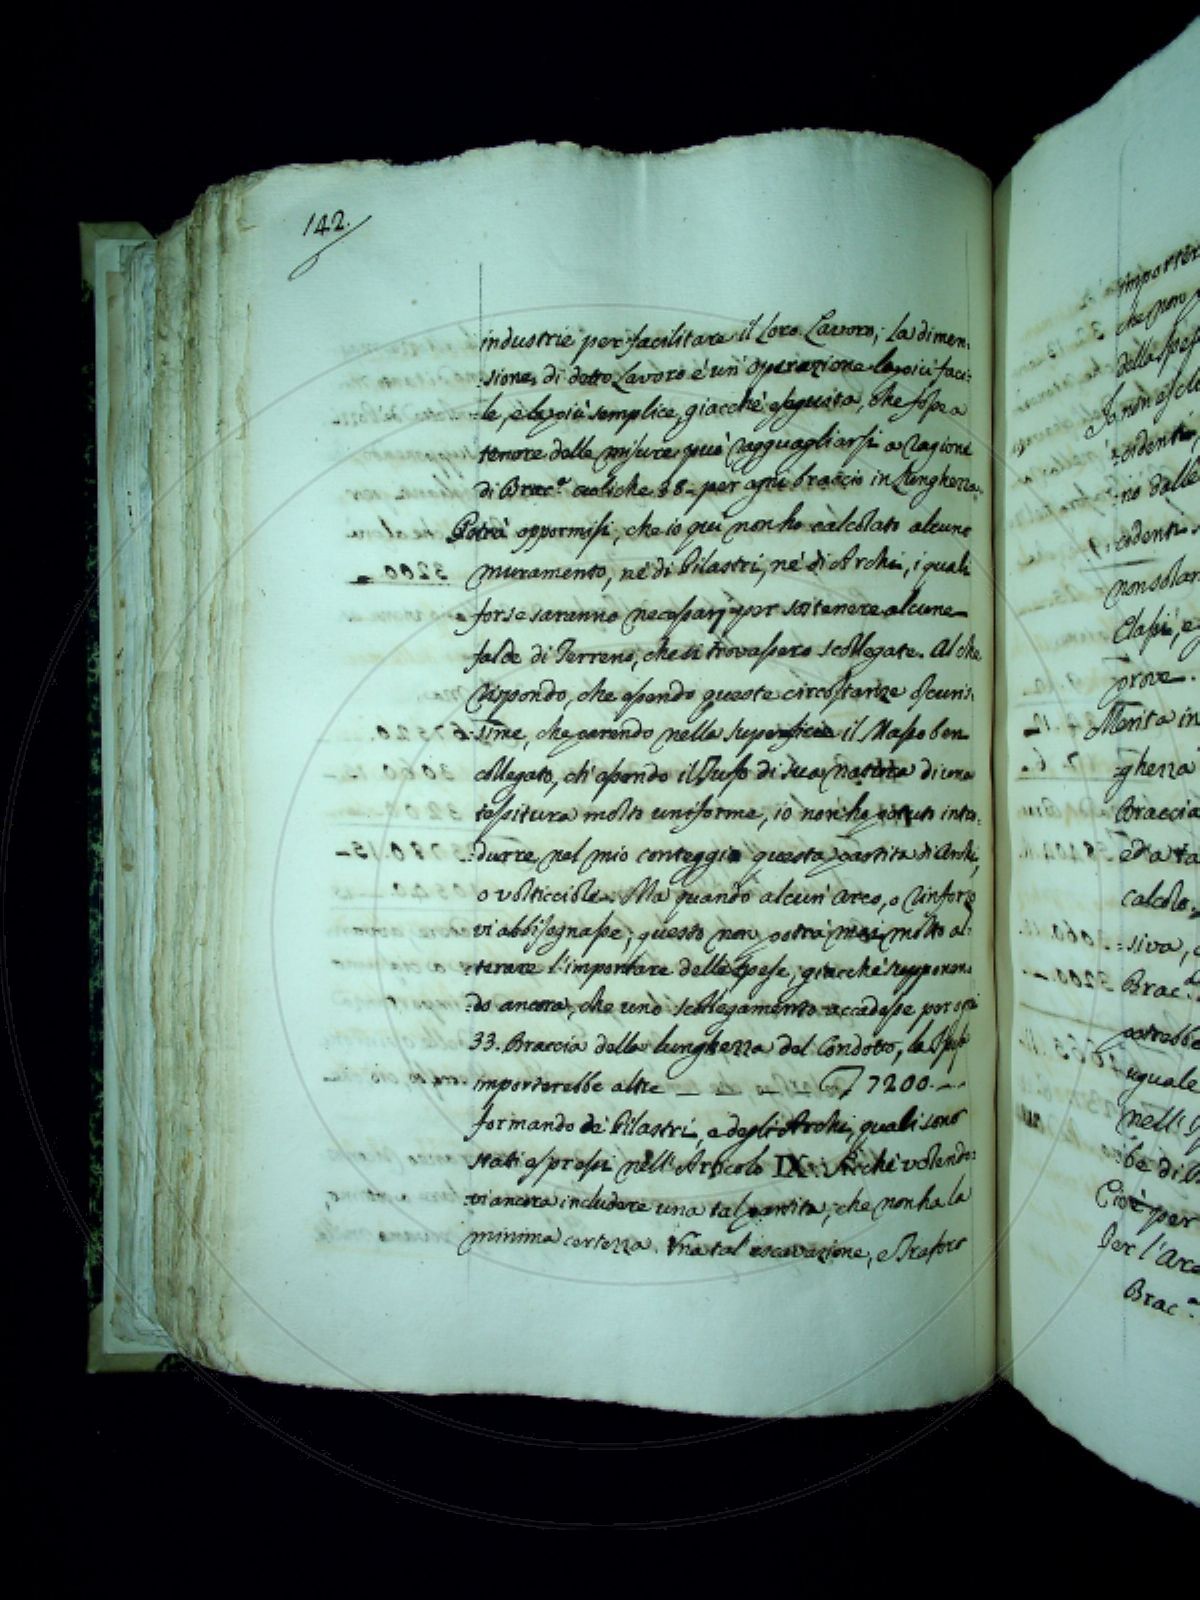 142.
industrie per facilitare il loro Lavoro; La dimen-
:sione, di detto Lavoro è un' operazione la più faci:
:le, e la più semplice, giacchè eseguita, che fosse a
tenore delle misure può ragguagliarsi a ragione
di Brac.a cubiche 38- per ogni braccio in lunghezza.
Potrà oppormisi, che io quì non ho calcolato alcuno
muramento, nè di Pilastri, nè di Archi, i quali
forse saranno necessarj per sostenere alcune
falde di Terreno, che si trovassero scollegate. Al che
rispondo, che essendo queste circostanze oscuris:
:sime, che avendo nella superficie il Masso ben
collegato, ed essendo il Tufo di sua natura di una
tessitura molto uniforme, io non ho potuto intro:
:durre nel mio conteggio questa partita di Archi,
o volticciole. Ma quando alcun' Arco, o rinforzo
vi abbisognasse; questo non potrà mai molto al:
:terare l'importare delle spese, giacchè supponen:
:do ancora, che uno scollegamento accadesse per ogni
33. Braccia della lunghezza del Condotto, la Spesa
importerebbe altre 7200.
formando de Pilastri, e degli Archi, quali sono
stati espressi nell' Articolo IX: Perchè volendo:
:vi ancora includere una tal partita, che non ha la
minima certezza. Una tal escavazione, e Traforo
importer
che non
della spes
Io non esclu
:cidenti,
:no dalle
:cidenti s
non solam
Classi, e
prove.
Merita in
:ghezza
Braccia
ed a ta
calcolo
:siva, c
Brac.a
potrebbe
uguale
nell'
:be di
Cioè per
Per l'Arc
Brac.